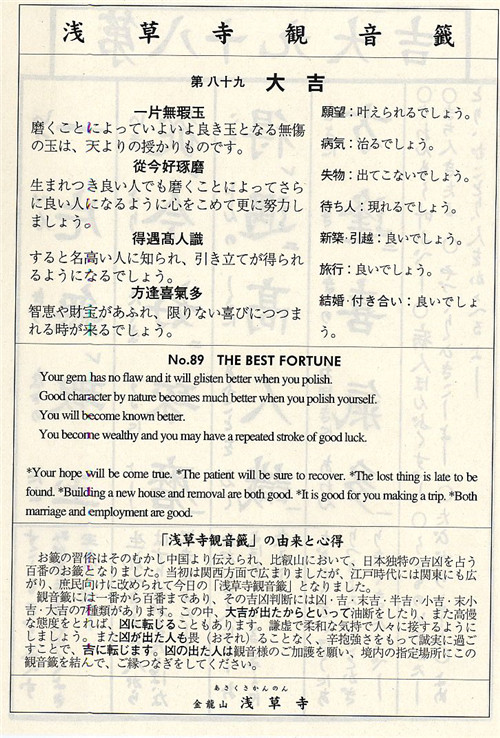 浅草寺観音籤
第八十九 大吉
一片無瑕玉
磨くことによっていよいよ良き玉となる無傷
の玉は、天よりの授かりものです。
從今好琢磨
生まれつき良い人でも磨くことによってさら
に良い人になるように心をこめて更に努力し
ましょう。
得遇髙人識
すると名高い人に知られ、引き立てが得られ
るようになるでしょう。
方逢喜氣多
智恵や財宝があふれ、限りない喜びにつつま
れる時が来るでしょう。
願望：叶えられるでしょう。
病気：治るでしょう。
失物：出てこないでしょう。
待ち人：現れるでしょう。
新築・引越：良いでしょう。
旅行：良いでしょう。
結婚・付き合い：良いでしょ
う。
No.89 THE BEST FORTUNE
Your gem has no flaw and it will glisten better when you polish.
Good character by nature becomes much better when you polish yourself.
You will become known better.
You become wealthy and you may have a repeated stroke of good luck.
*Your hope will be come true. *The patient will be sure to recover. *The lost thing is late to be
found. *Building a new house and removal are both good. *It is good for you making a trip. *Both
marriage and employment are good.
「浅草寺観音籤」の由来と心得
お籤の習俗はそのむかし中国より伝えられ、比叡山において、日本独特の吉凶を占う
百番のお籤となりました。当初は関西方面で広まりましたが、江戸時代には関東にも広
がり、庶民向けに改められて今日の「浅草寺観音籤」となりました。
観音籤には一番から百番まであり、その吉凶判断には凶・吉・末吉・半吉・小吉・末小
吉・大吉の7種類があります。この中、大吉が出たからといって油断をしたり、また高慢
な態度をとれば、凶に転じることもあります。謙虚で柔和な気持で人々に接するように
しましょう。また凶が出た人も畏（おそれ）ることなく、辛抱強さをもって誠実に過ご
すことで、吉に転じます。凶の出た人は観音様のご加護を願い、境内の指定場所にこの
観音籤を結んで、ご縁つなぎをしてください。
あさくさかんのん
金龍山 浅草寺